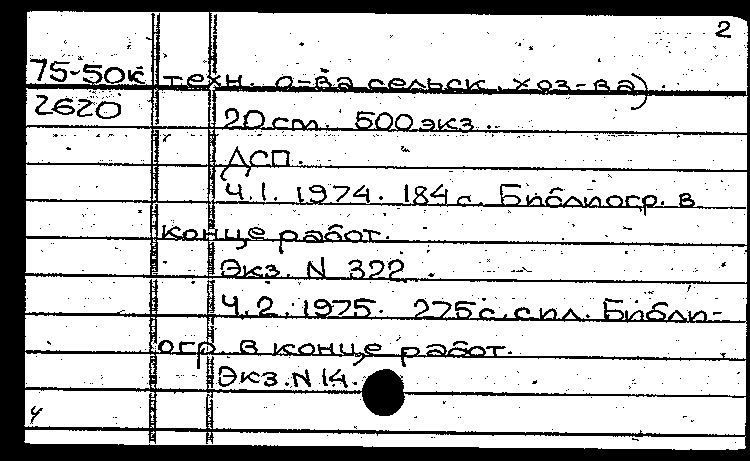 2
75-50к техн. о-ва сельск. хоз-ва)
2620 20 см. 500 экз.
ДСП.
Ч.1. 1974. 184 с. Библиогр. в
конце работ.
Экз. N 322
Ч.2. 1975. 275 с. с ил. Библи-
огр. в конце работ.
Экз. N 14.